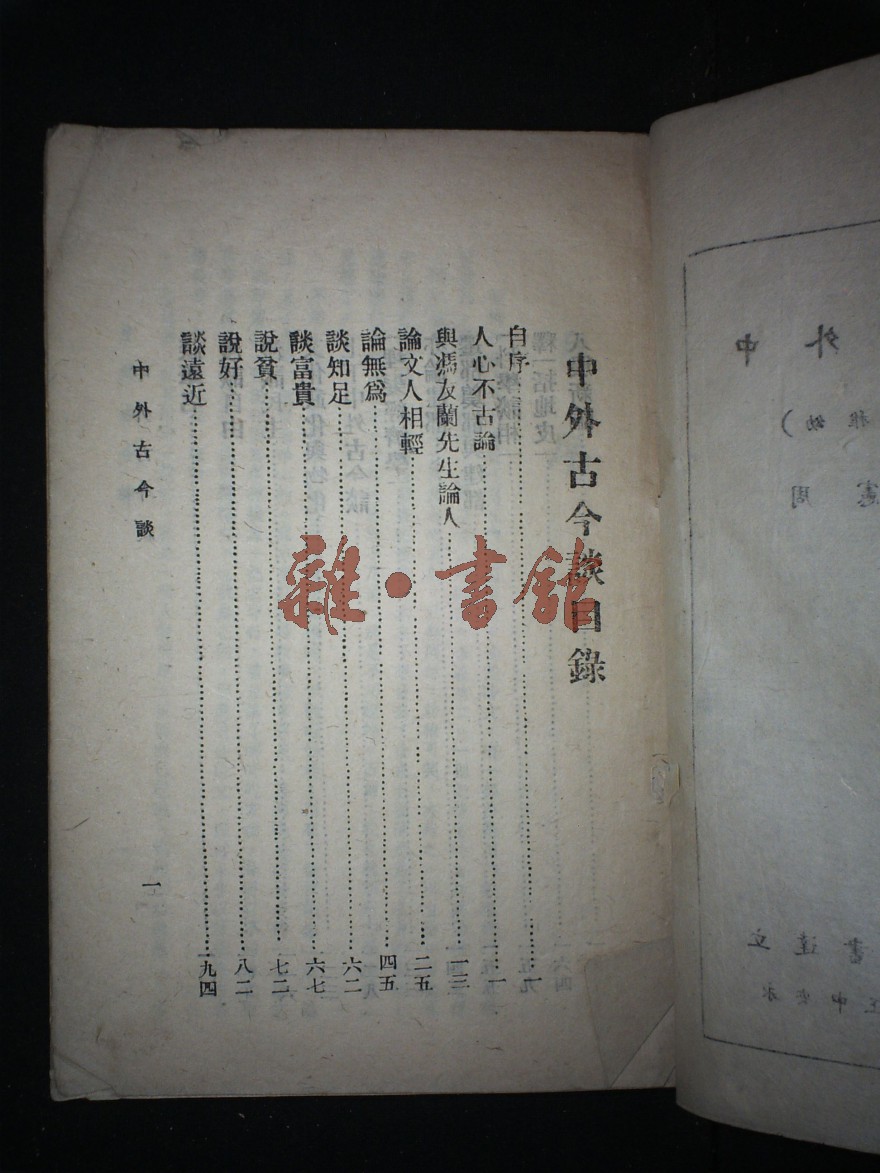 中外古今談目錄
自序……一
人心不古論……一
與馮友蘭先生論人……一三
論文人相輕……二五
論無爲……四五
談知足……六二
談富貴……六七
說貧……七二
說好……八二
談遠近……九四
中外古今談
一
雜·書館